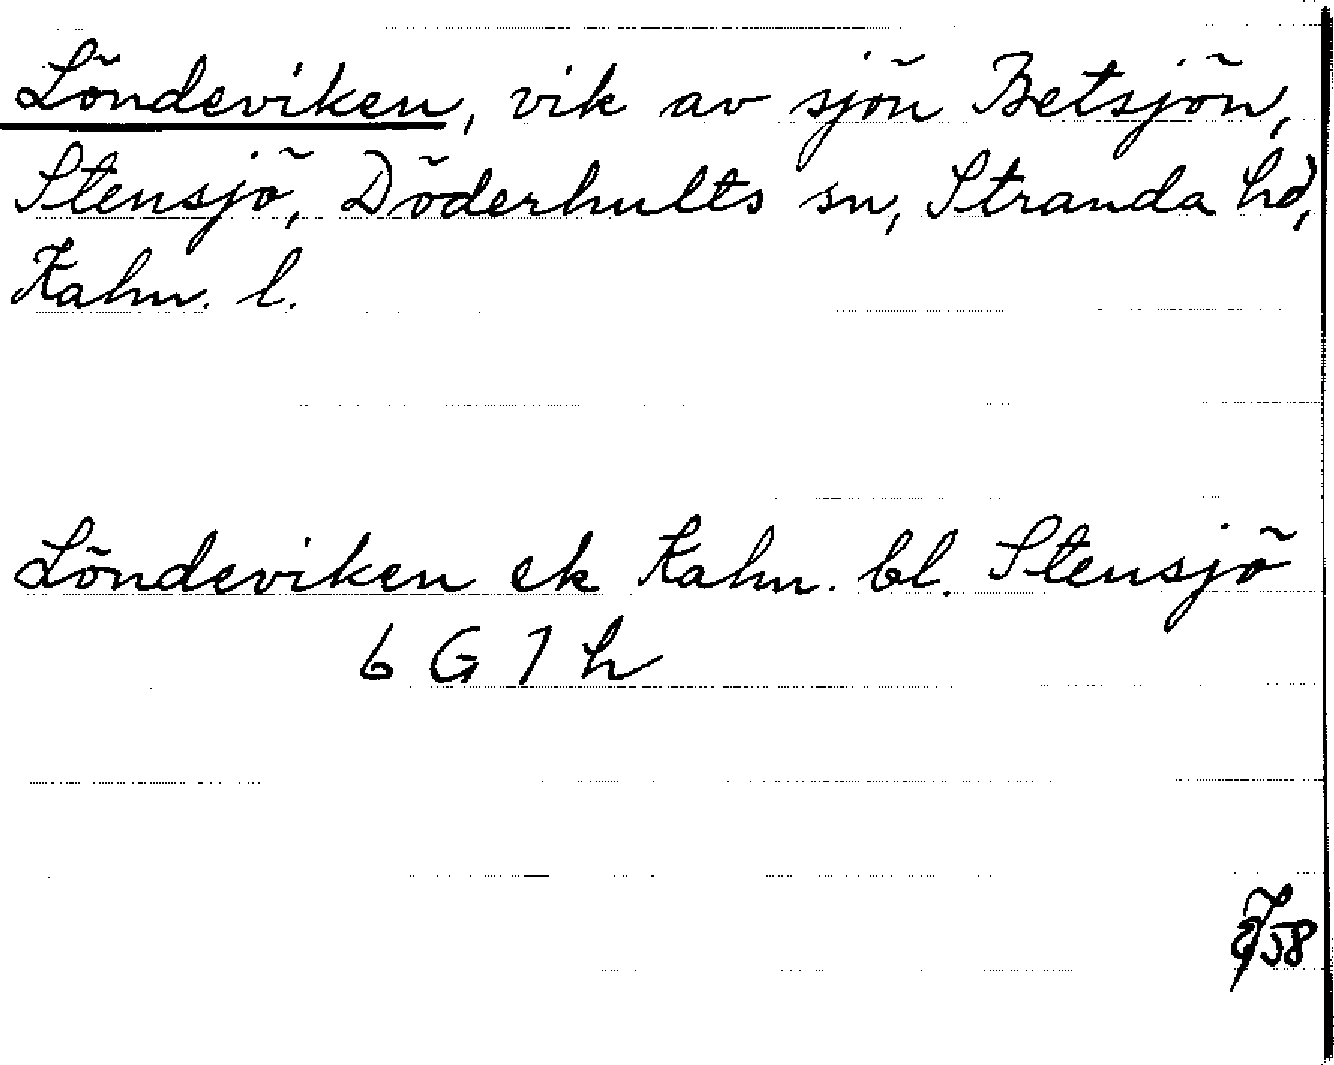 Löndeviken, vik av sjön Betsjön,
Stensjö, Döderhults sn, Stranda hd,
Kalm. l.
Löndeviken ek Kalm. bl. Stensjö
6 G 7 h
58